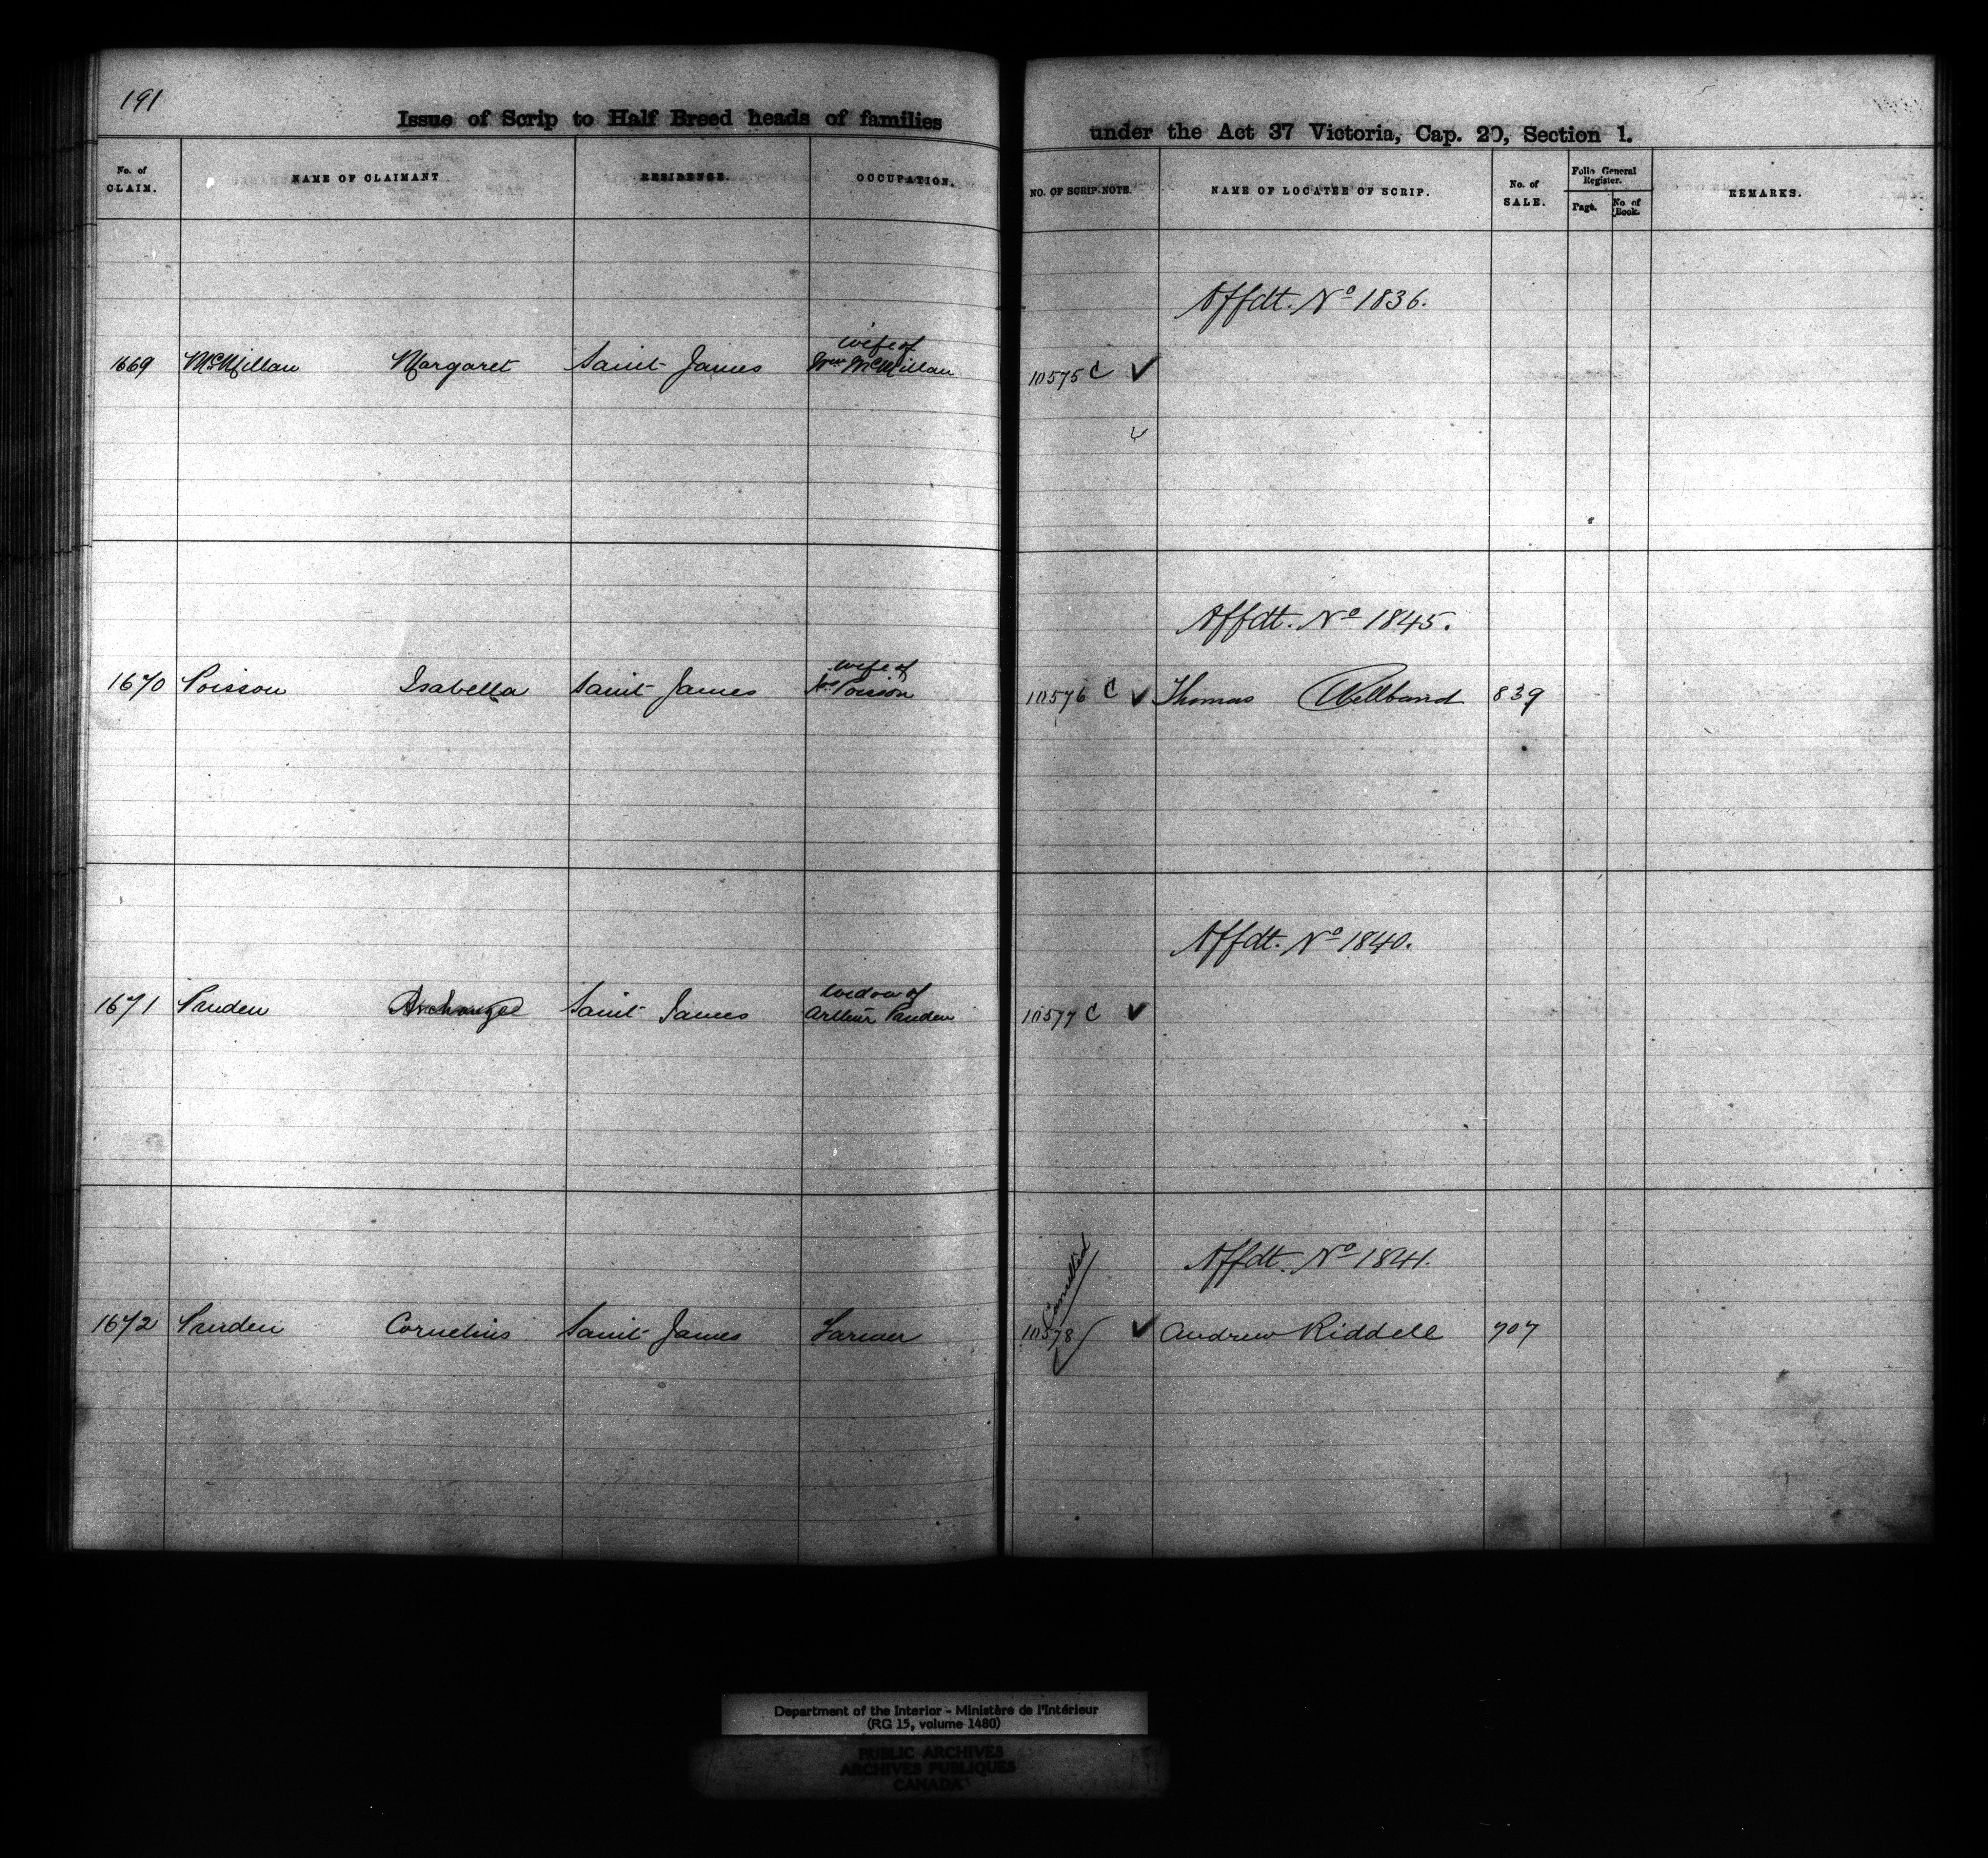 191
Issue of Scrip to Half Breed heads of families under the Act 37 Victoria, Cap. 20, Section 1.
No. of CLAIM. NAME OF CLAIMANT RESIDENCE. OCCUPATION. NO. OF SCRIP NOTE. NAME OF LOCATEE OF SCRIP. No. of SALE. Folio General Register. Page. No of Book. REMARKS.
Affdt. No 1836.
wife of
1669 McMillan Margaret Saint James Wm McMillan 10575 C ✓
Affdt. No 1845.
wife of
1670 Poisson Isabella Saint James Poisson 10576 C ✓ Thomas Wellband 839
Affdt. No 1840.
widow of
1671 Pruden Archangel Saint James Arthur Pruden 10577 C ✓
Affdt. No 1841.
Cancelled
1672 Pruden Cornelius Saint James Farmer 10578 ✓ Andrew Riddell 707
Department of the Interior - Ministère de l'Intérieur
(RG 15, volume 1480)
PUBLIC ARCHIVES
ARCHIVES PUBLIQUES
CANADA